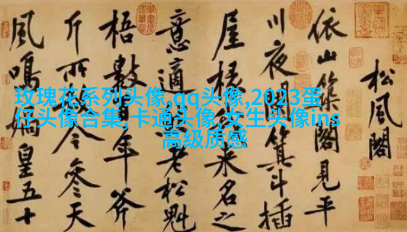 玫瑰花系列头像,qq头像,2023蛋
仔头像合集,卡通头像,女生头像ins
高级质感
松風閣
依山築閣見平
川夜箕斗插
屋椽來名之
意適老松魁
梧數年斧
斤所今參天
風鳴媧皇五十